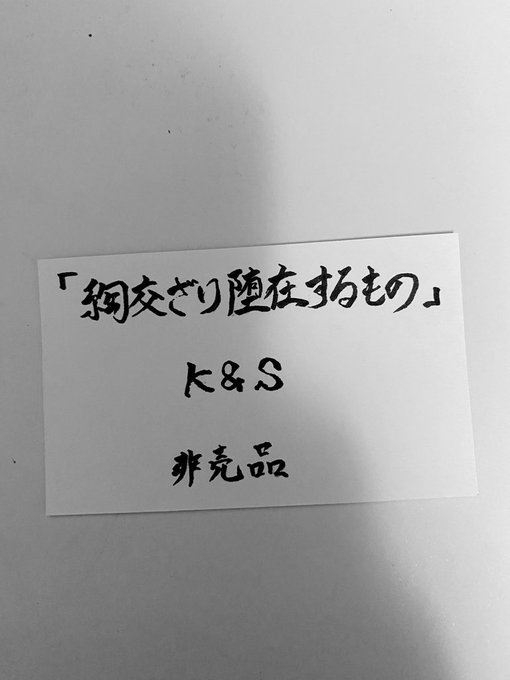 「網交ざり堕在するもの」
K&S
非売品